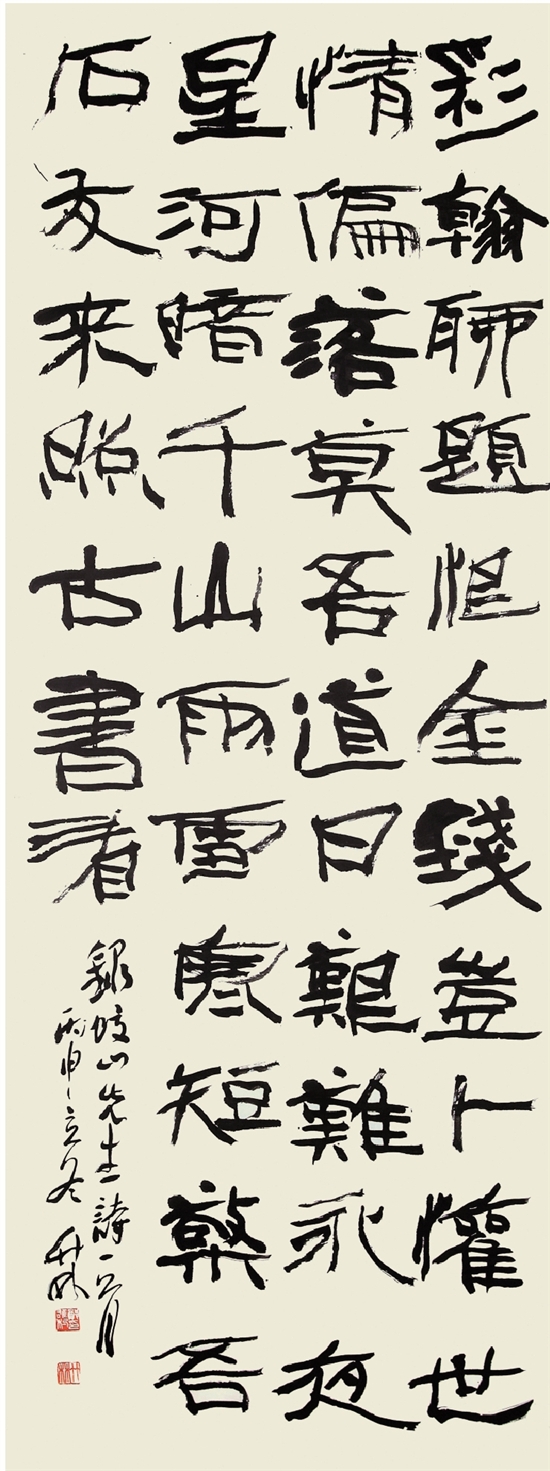 彩翰聊題恨金錢豈卜懽世
情偏落莫吾道日艱難永夜
星河暗千山雨雪寒短檠吾
石友來照古書看
錄山先生詩一首
丙申立冬